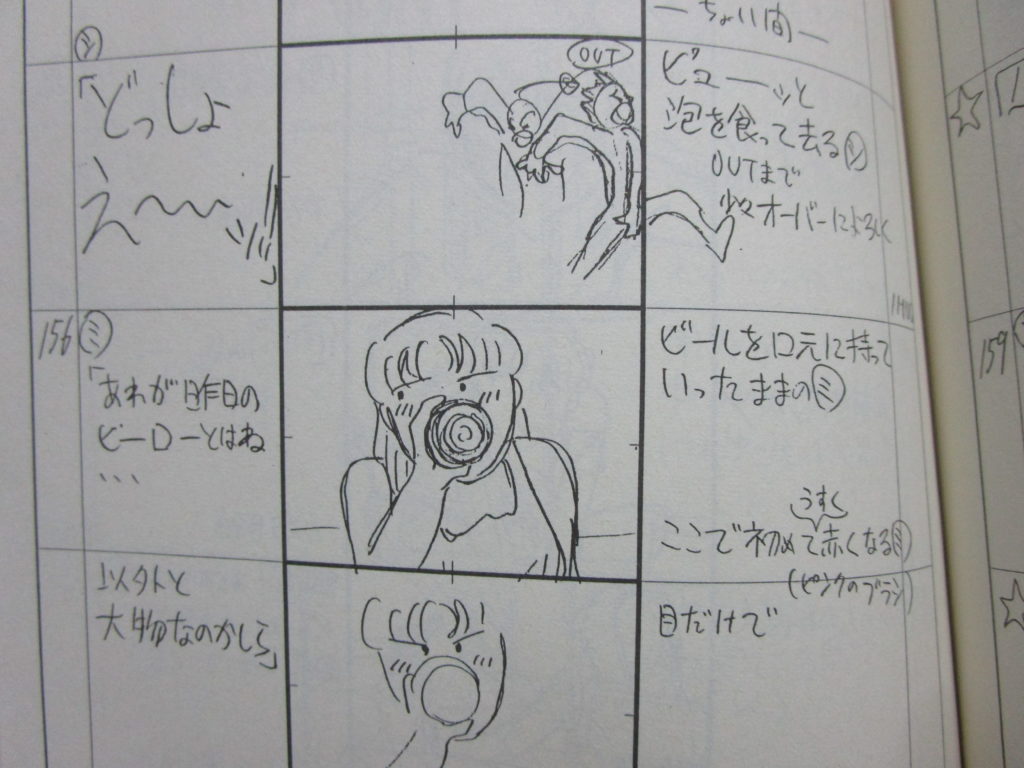 ― ちょい間 ―
OUT
シ
「どっしょ
え〜〜ッ!!」
ビューーッと
泡を食って去るシ
OUTまで
少々オーバーによろしく
156
ミ
「あれが昨日の
ヒーローとはね
、、、
ビールを口元に持って
いったままのミ
うすく
ここで初めて赤くなるミ
(ピンクのブラシ)
以外と
大物なのかしら」
目だけで
159